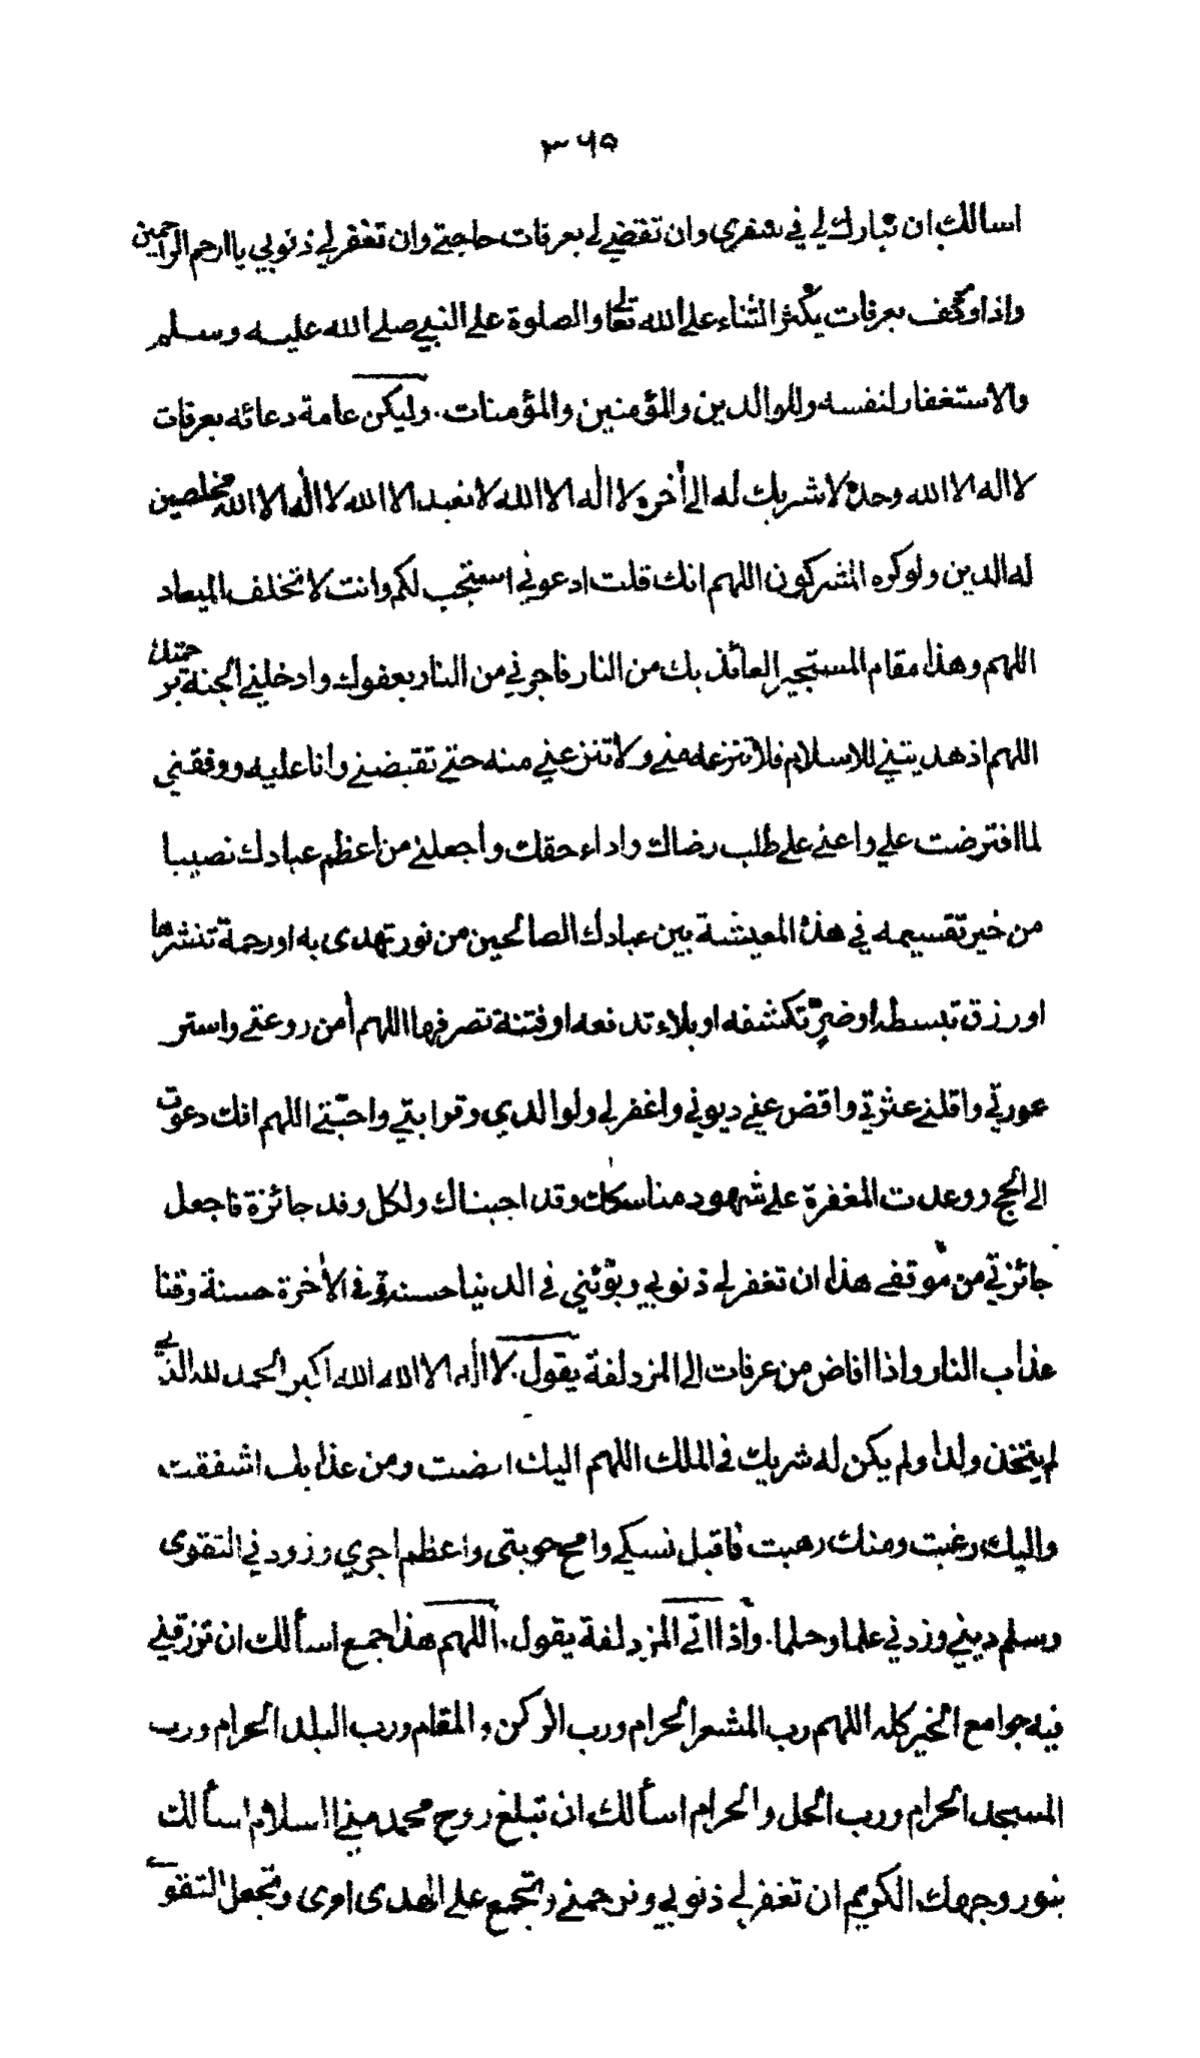 ٣٦٥
اسالك ان تبارك لي في سفري وان تقضي لي بعرفات حاجتي وان تغفر لي ذنوبي يا ارحم الراحمين
واذا وقف بعرفات يكثر الثناء على الله تعالى والصلوة على النبي صلى الله عليه وسلم
والاستغفار لنفسه وللوالدين والمؤمنين والمؤمنات. وليكن عامة دعائه بعرفات
لا اله الا الله وحده لا شريك له الى أخره لا اله الا الله لا نعبد الا الله لا اله الا الله مخلصين
له الدين ولو كره المشركون اللهم انك قلت ادعوني استجب لكم وانت لا تخلف الميعاد
اللهم وهذا مقام المستجير العائذ بك من النار فاجرني من النار بعفوك وادخلني الجنة برحمتك
اللهم اذ هديتني للاسلام فلا تنزعه مني ولا تنزعني منه حتى تقبضني وانا عليه ووفقني
لما افترضت علي واعني على طلب رضاك واداء حقك واجعلني من اعظم عبادك نصيبا
من خير تقسيمه في هذه المعيشة بين عبادك الصالحين من نور تهدى به او رحمة تنشرها
او رزق تبسطه او ضرٍّ تكشفه او بلاء تدفعه او فتنة تصرفها اللهم أمن روعتي واستر
عورتي واقلني عثرتي واقض عني ديوني واغفر لي ولوالدي وقرابتي واحبّتي اللهم انك دعوت
الى الحج ووعدت المغفرة على شهود مناسكك وقد اجبناك ولكل وفد جائزة فاجعل
جائزتي من موقفي هذا ان تغفر لي ذنوبي وتؤتني في الدنيا حسنة وفي الأخرة حسنة وقنا
عذاب النار واذا افاض من عرفات الى المزدلفة يقول. لا اله الا الله الله اكبر الحمد لله الذي
لم يتخذ ولدا ولم يكن له شريك في الملك اللهم اليك افضت ومن عذابك اشفقت
واليك رغبت ومنك رهبت فاقبل نسكي وامح حوبتى واعظم اجري وزودني التقوى
وسلم ديني وزدني علما وحلما. وأذا اتى المزدلفة يقول. اللهم هذا جمع اسألك ان ترزقني
فيه جوامع الخير كله اللهم رب المشعر الحرام ورب الركن والمقام ورب البلد الحرام ورب
المسجد الحرام ورب الحل والحرام اسألك ان تبلغ روح محمد مني السلام اسألك
بنور وجهك الكريم ان تغفر لي ذنوبي وترحمني وتجمع على الهدى امرى وتجعل التقوى